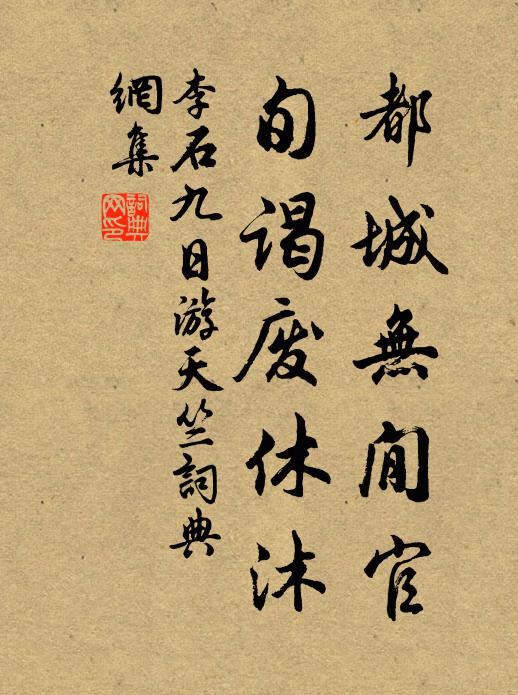 都城無閒官
旬謁废休沐
李石九日游天竺詞典
網集
詞典网印